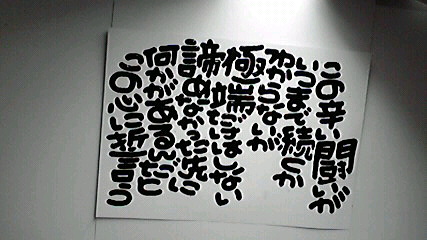 この辛い闘いが
いつまで続くか
わからないが
極端だばはしない
諦めなかった先に
何かがあるんだと
この心に誓う